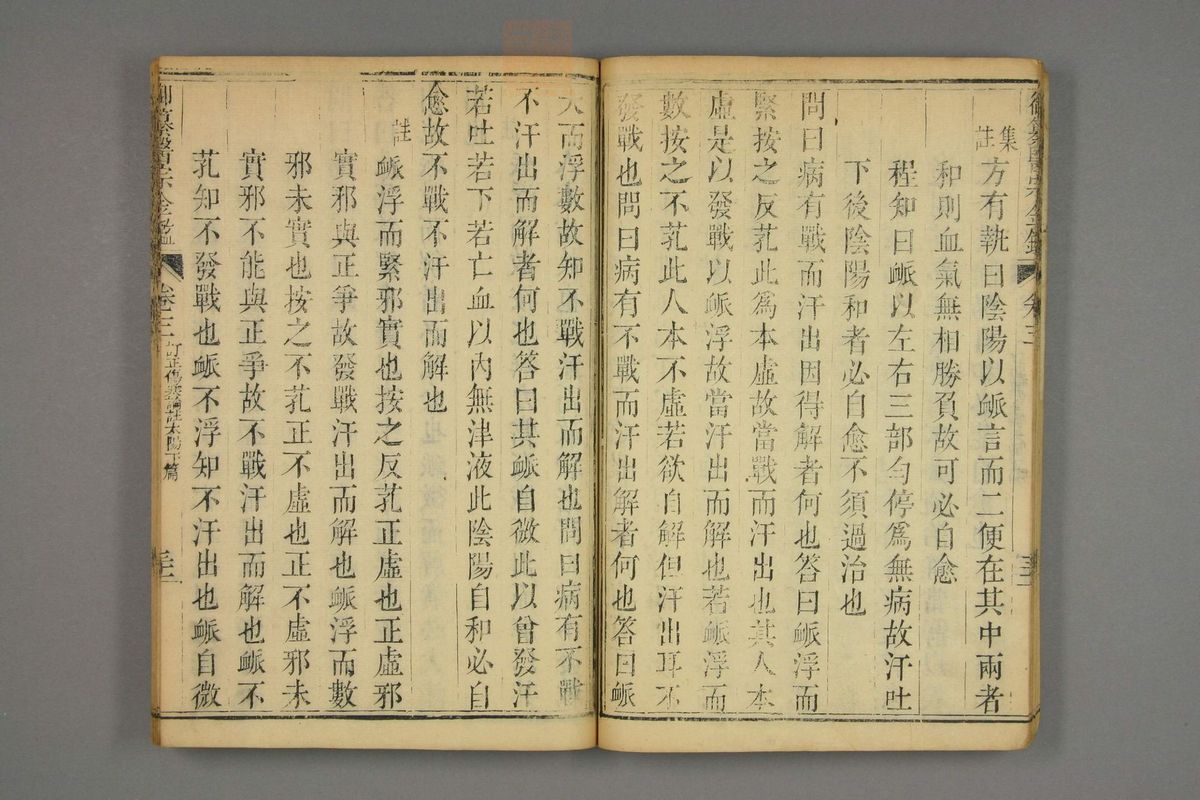 御纂醫宗金鑑 卷三 三
集註
方有執曰陰陽以䘑言而二便在其中兩者
和則血氣無相勝負故可必自愈
程知曰䘑以左右三部勻停爲無病故汗吐
下後陰陽和者必自愈不須過治也
問曰病有戰而汗出因得解者何也答曰䘑浮而
緊按之反芤此爲本虛故當戰而汗出也其人本
虛是以發戰以䘑浮故當汗出而解也若䘑浮而
數按之不芤此人本不虛若欲自解但汗出耳不
發戰也問曰病有不戰而汗出解者何也答曰䘑
大而浮數故知不戰汗出而解也問曰病有不戰
不汗出而解者何也答曰其䘑自微此以曾發汗
若吐若下若亡血以內無津液此陰陽自和必自
愈故不戰不汗出而解也
註
䘑浮而緊邪實也按之反芤正虛也正虛邪
實邪與正爭故發戰汗出而解也䘑浮而數
邪未實也按之不芤正不虛也正不虛邪未
實邪不能與正爭故不戰汗出而解也䘑不
芤知不發戰也䘑不浮知不汗出也䘑自微
御纂醫宗金鑑 卷三 訂正傷寒論註太陽下篇